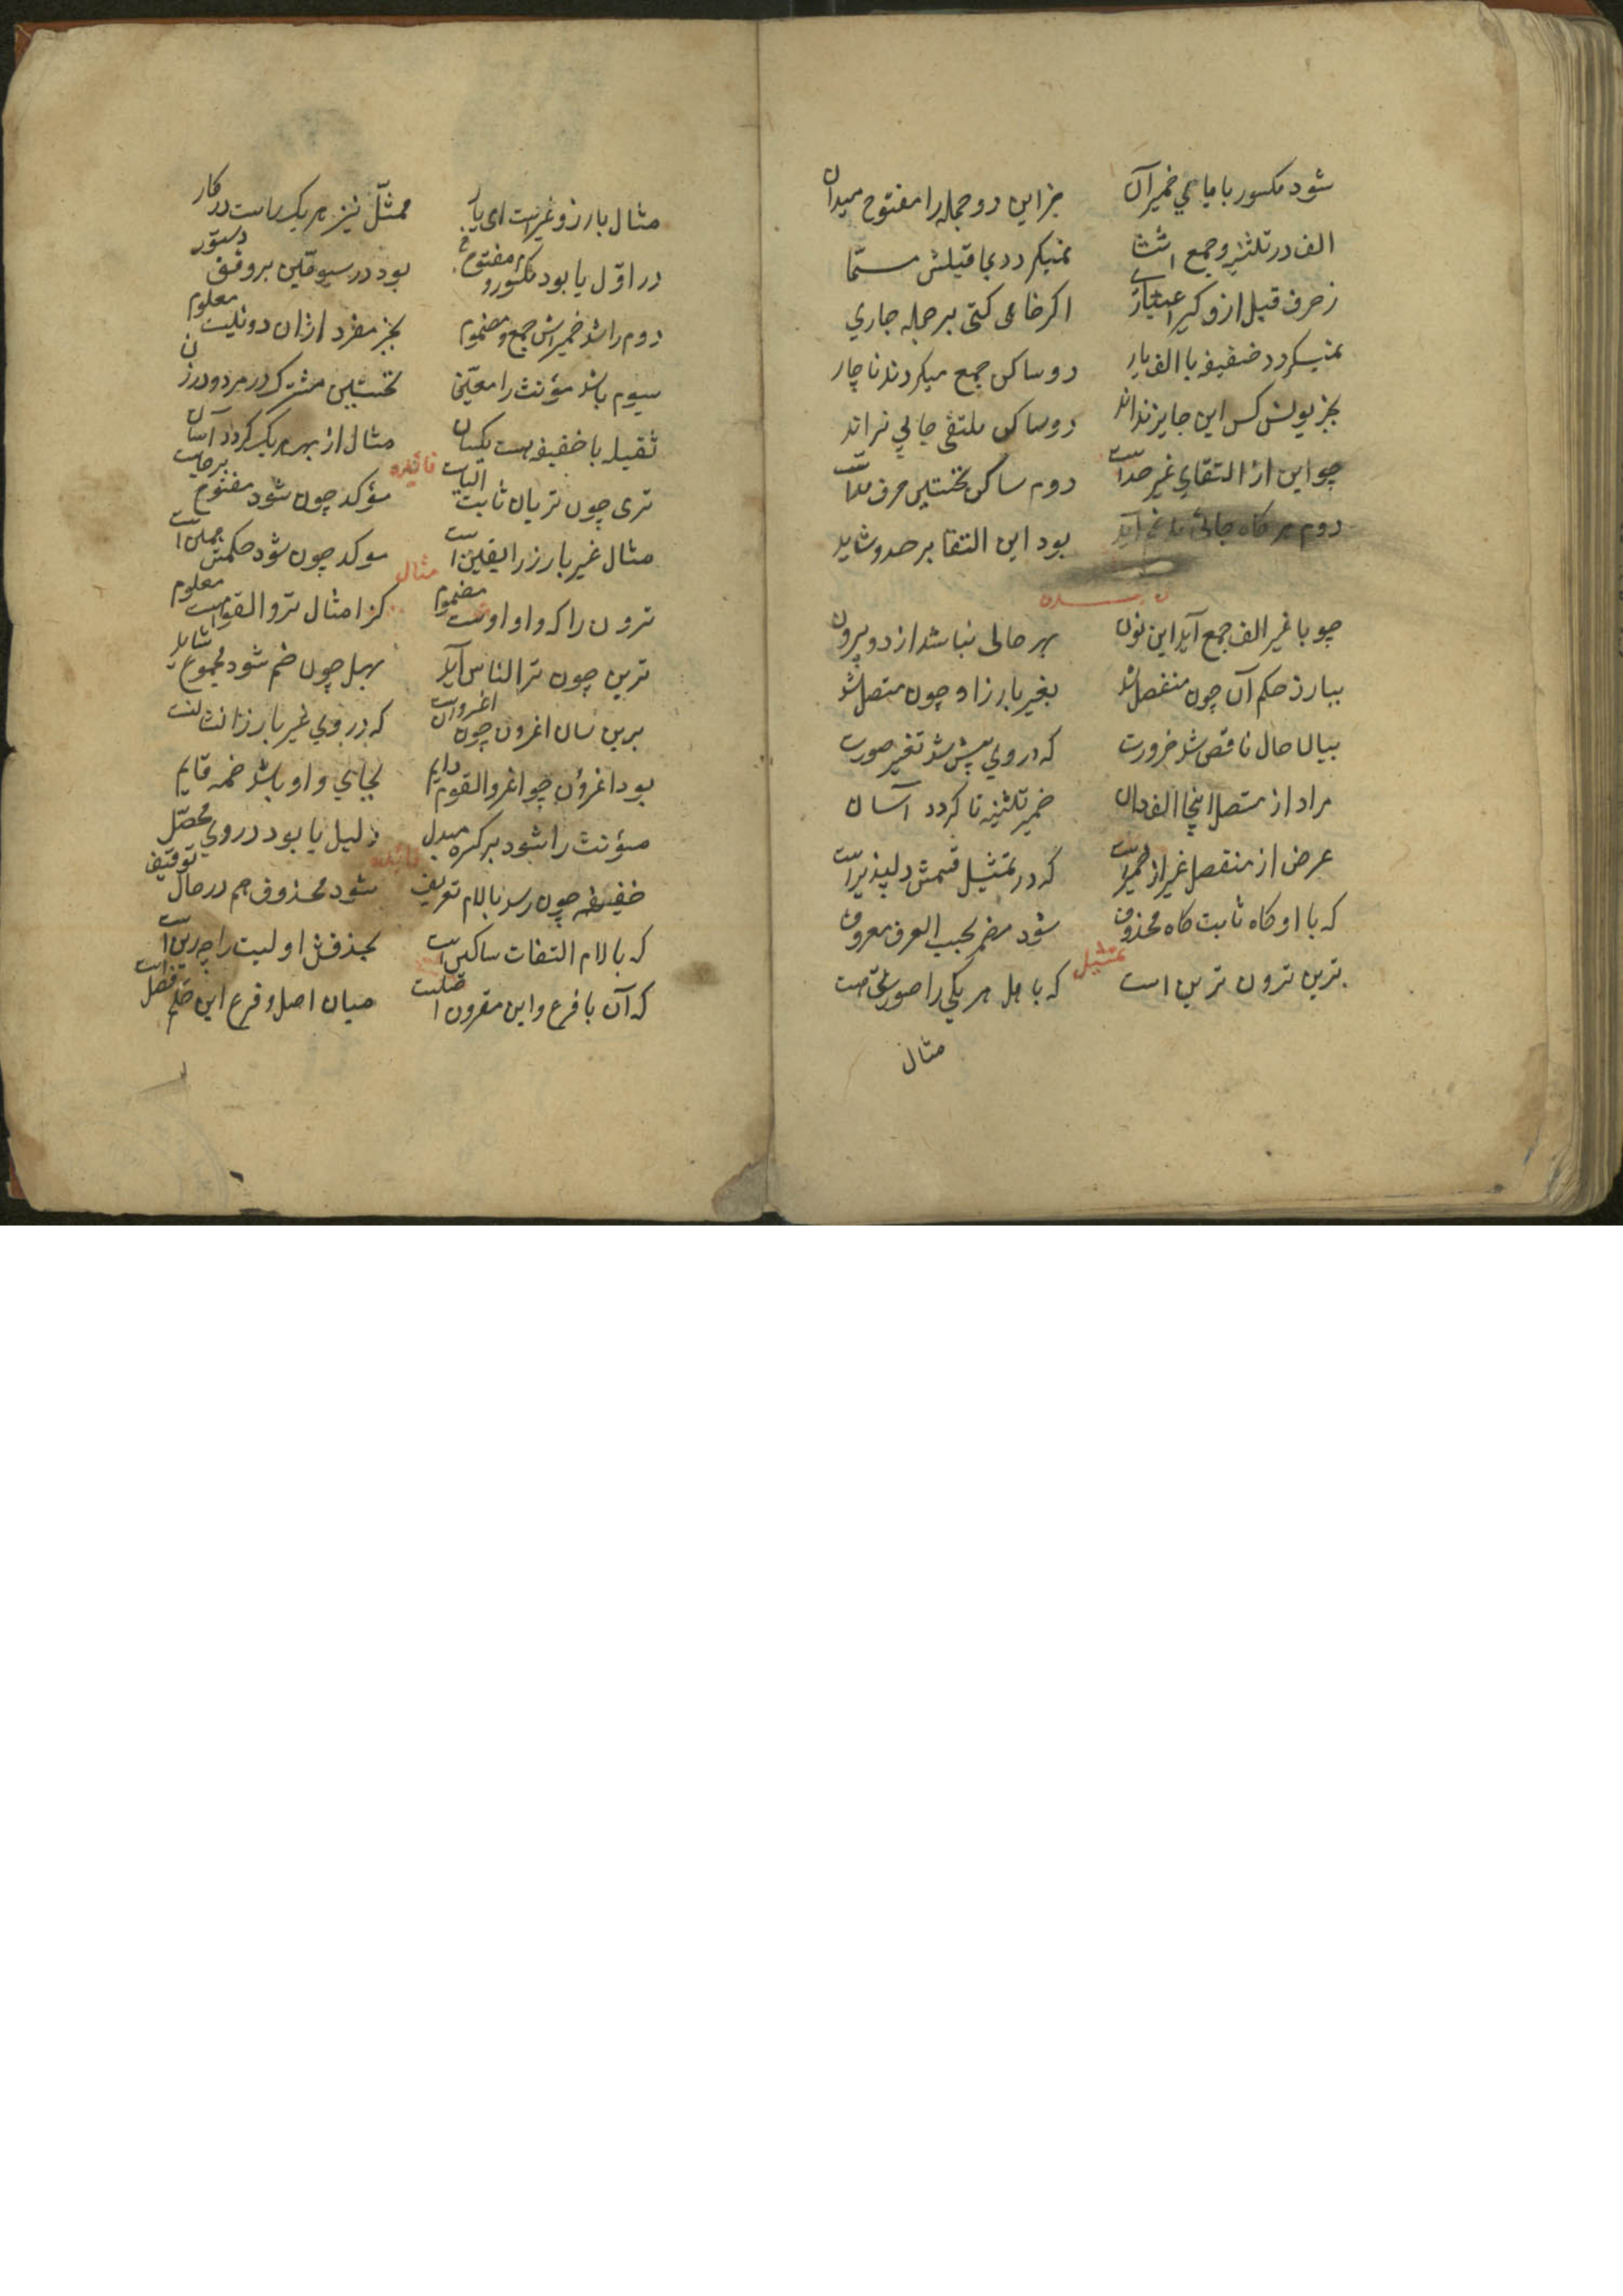 شود مکسور با یای ضمیر آن جز این دو جمله را مفتوح میدان
الف در تثنیه و جمع اناث نمیکردد بماقبلش مسما
ز حرف قبل ازو کیر اعتباری اکر خاهی کنی بر جمله جاری
نمیکردد خفیفه با الف یار دو ساکن جمع میکردند ناچار
بجز یونس کس این جایز نداند دو ساکن ملتقی جایی نراند
چو این از التقای غیر حد است دوم ساکن نخستین حرف مد است
دوم هر کاه جائی مدغم آید بود این التقا بر حد و شاید
چو با غیر الف جمع آید این نون بهر حالی نباشد از دو بیرون
ببارز حکم آن چون منفصل شد بغیر بارز او چون متصل شد
ببالا حال ناقص شد ضرورت که در وی پیش شد تغیر صورت
مراد از متصل اینجا الف دان ضمیر تثنیه تا کردد آسان
غرض از منفصل غیر از ضمیر است که در تمثیل قسمش دلپذیر است
که با او کاه ثابت کاه محذوف شود مضمر بحسب العرف معروف
تمثیل
برین ترون ترین است که با هل هر یکی را صورتی هست
مثال
مثال بارز و غیر است ای یار ممثل نیز هر یک راست در کار
در اول یا بود مکسور و مفتوح بود در سیومین بر وفق دستور
دوم را شد ضمیرش جمع و مضموم بجز مفرد ازان دو نیست معلوم
سیوم باشد مؤنث را معین نخستین مشترک در مرد و در زن
ثقیله با خفیفه هست یکسان مثال از بهر هر یک کردد آسان
فائیده
تری چون تریان ثابت الیاست مؤکد چون شود مفتوح برجاست
مثال غیر بارز را یقین است موکد چون شود حکمش همین است
مثال
ترون را که واو اوست مضموم کزا مثال ترو القوم است معلوم
ترین چون تر الناس آید بهل چون ضم شود مجموع شاید
برین سان اغرون چون اغروا است که در وی غیر بارز
بود اغرون چو اغروا القوم دایم بجای واو باشد ضمه قایم
مؤنث را شود بر کسره مبدل دلیل یا بود در وی محصل
فائیده
خفیفه چون رسد با لام تعریف شود محذوف هم در حال توقیف
که با لام التقات ساکنین است بحذفش اولیت راجح این است
که آن با فرع و این مقرون اصلیت میان اصل و فرع این حکم فصل است